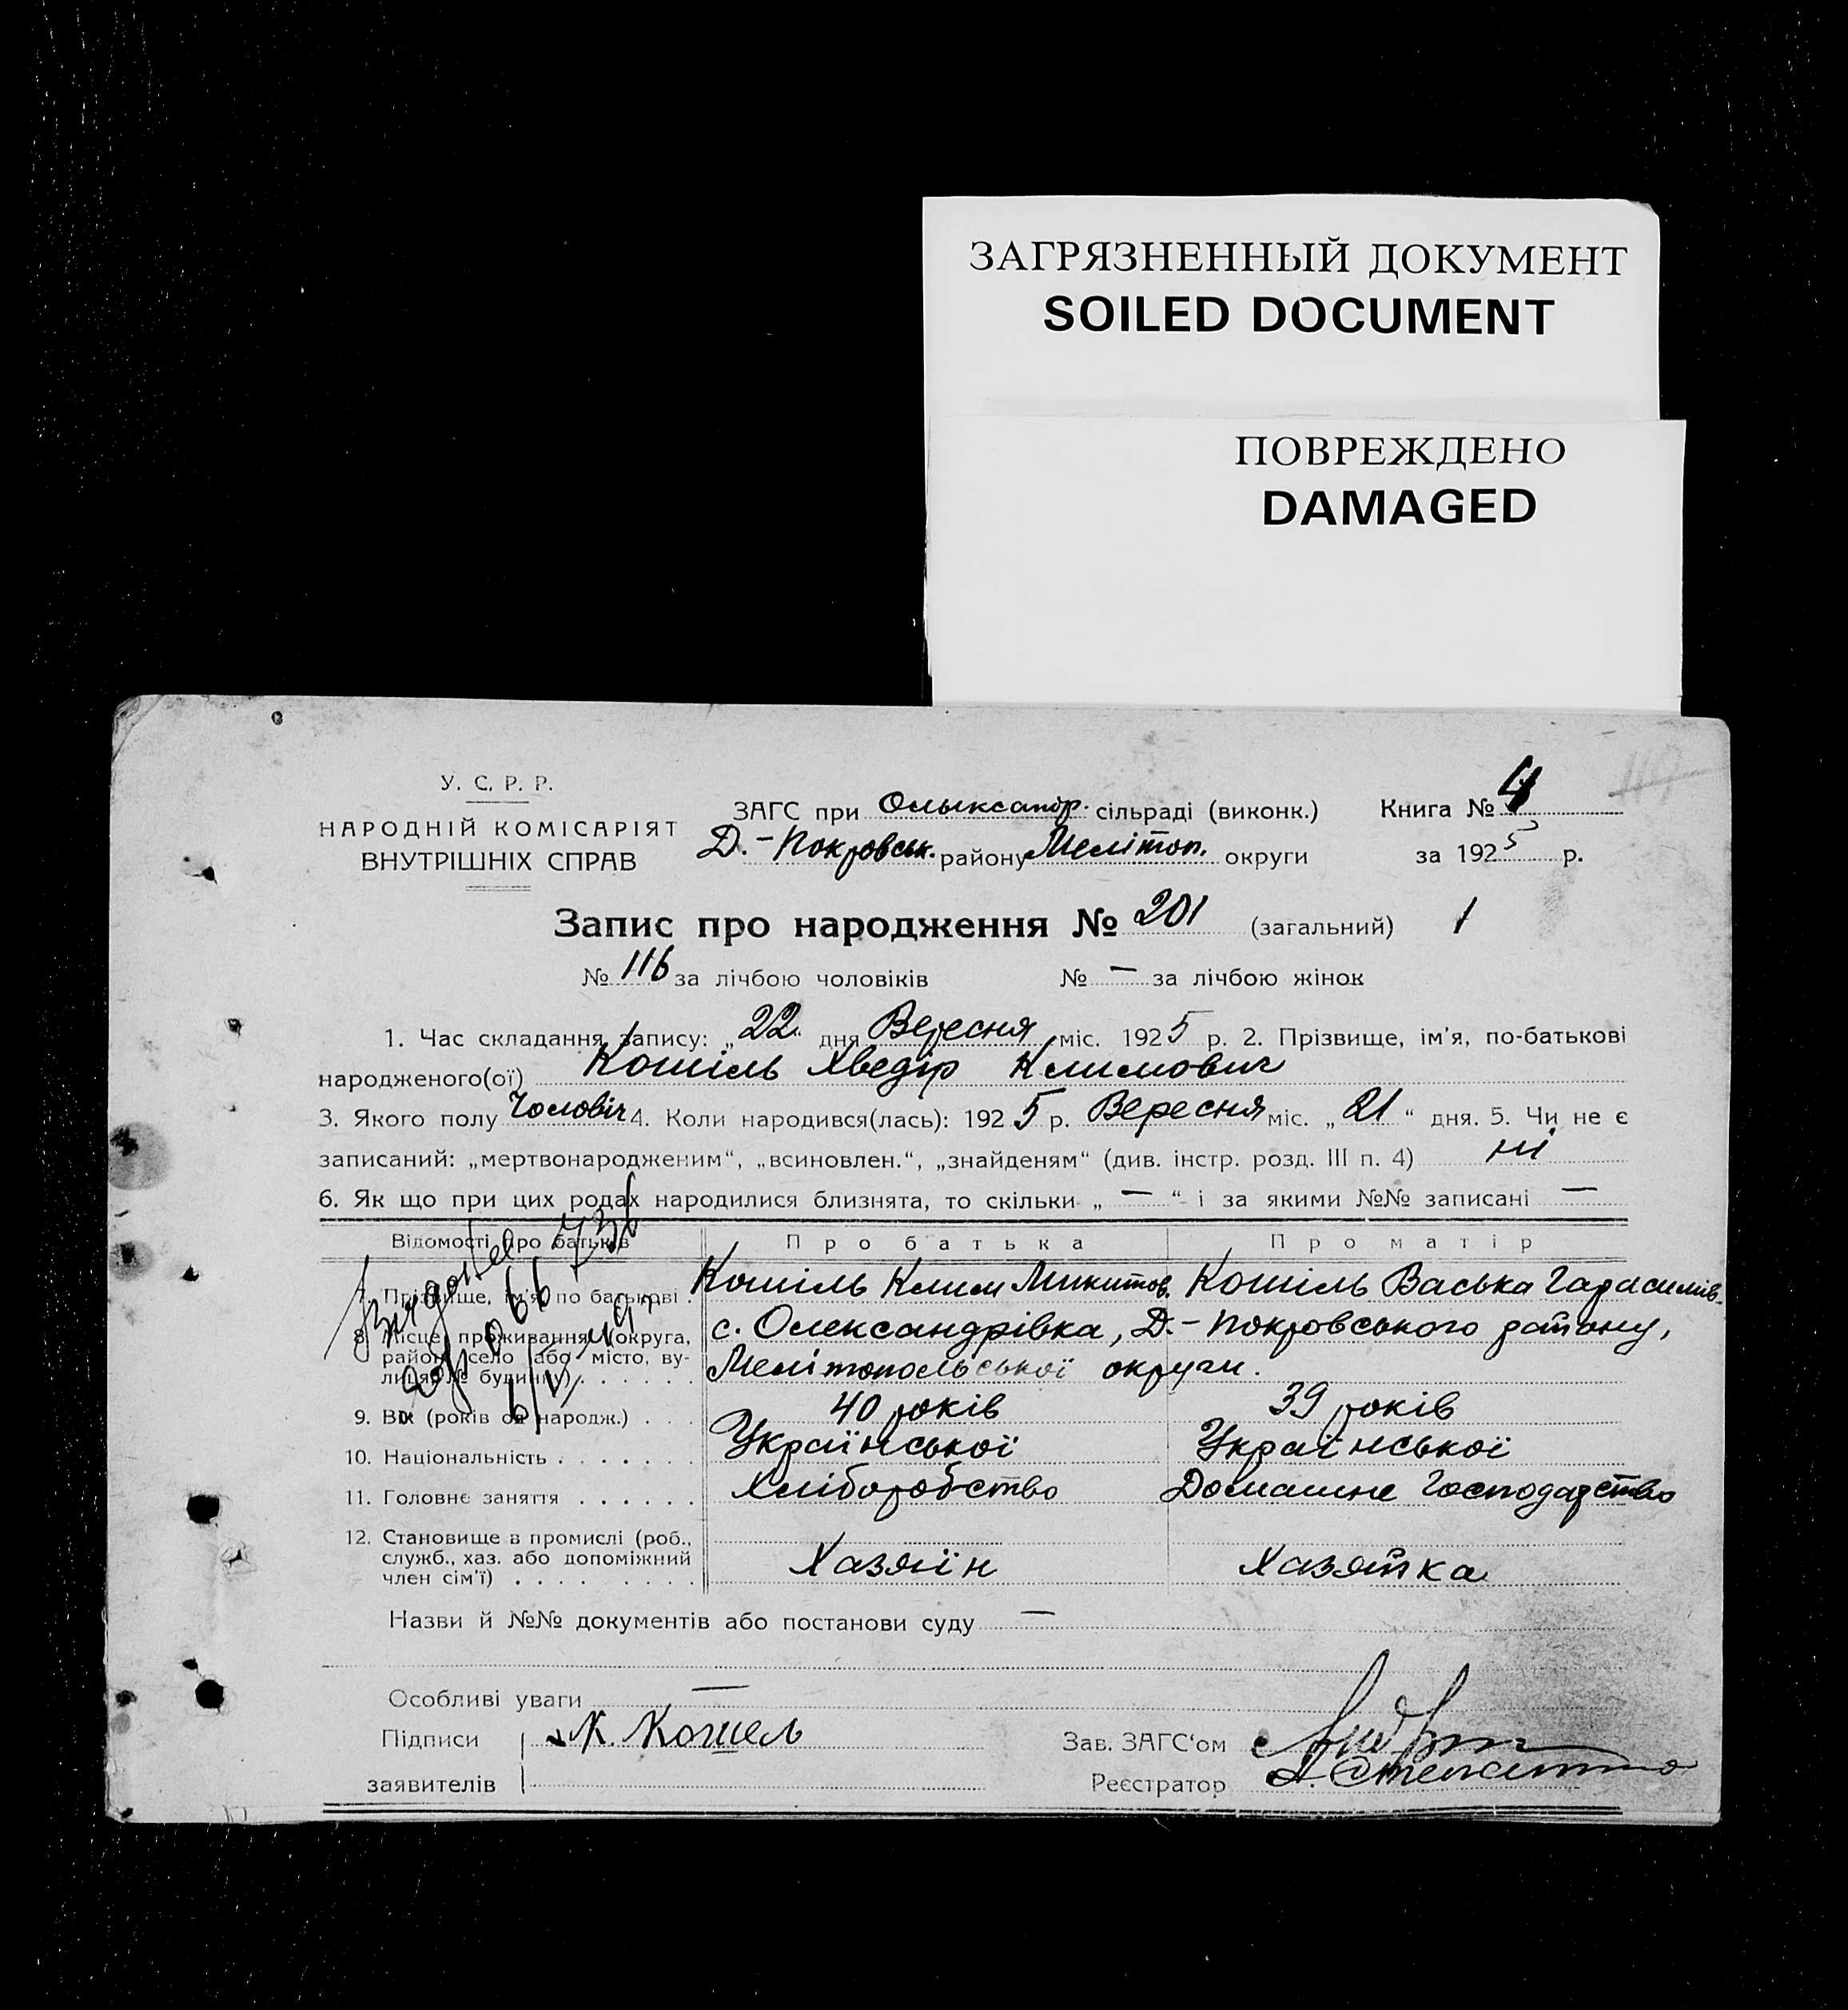 ЗАГРЯЗНЕННЫЙ ДОКУМЕНТ
SOILED DOCUMENT
ПОВРЕЖДЕНО
DAMAGED
У. С. Р. Р.
НАРОДНІЙ КОМІСАРІЯТ
ВНУТРІШНІХ СПРАВ
ЗАГС при Олександр. сільраді (виконк.) Книга № 4
Д.-Покровськ. району Меліт​оп. округи за 1925 р.
Запис про народження № 201 (загальний) 1
№ 116 за лічбою чоловіків № — за лічбою жінок
1. Час складання запису: „22" дня Вересня міс. 1925 р. 2. Прізвище, ім'я, по-батькові
народженого(ої) Кошіль Хведір Климович
3. Якого полу Чоловіч 4. Коли народився(лась): 1925 р. Вересня міс. „21" дня. 5. Чи не є
записаний: „мертвонародженим", „всиновлен.", „знайденям" (див. інстр. розд. III п. 4) ні
6. Як що при цих родах народилися близнята, то скільки „ — " і за якими №№ записані —
Відомості про батьків Про батька Про матір
7. Прізвище, ім'я, по батькові . Кошіль Клим Микитов. Кошіль Васька Гарасимів.
8. Місце проживання (округа, с. Олександрівка, Д.-Покровського району,
район, село або місто, ву-
лиця № будинку) . . . . . . Мелітопольської округи.
9. Вік (років од народж.) . . . 40 років 39 років
10. Національність . . . . . . . Української Української
11. Головнє заняття . . . . . . Хліборобство Домашнє Господарство
12. Становище в промислі (роб.,
служб., хаз. або допоміжний
член сім'ї) . . . . . . . . Хазяїн Хазяйка
Назви й №№ документів або постанови суду —
Особливі уваги —
Підписи К. Кошель Зав. ЗАГС'ом
заявителів Реєстратор